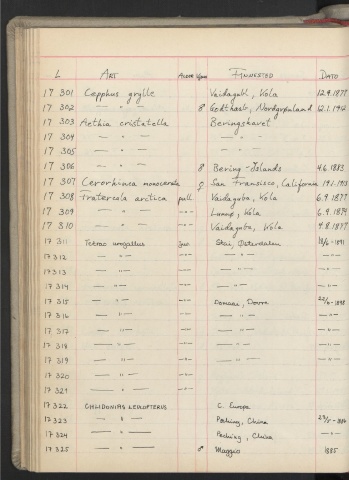 L ART ALDER Kjønn FINNESTED DATO
17 301 Cepphus grylle Vaidagubl, Kola 12.9.1877
17 302 — " — ♂ Godthaab, Nordgrønland 12.1.1912
17 303 Aethia cristatella Beringshavet
17 304 — " — — " —
17 305 — " — — " —
17 306 — " — ♂ Bering-Islands 4.6.1883
17 307 Cerorhinca monocerata ♀ San Fransisco, California 19.1.1913
17 308 Fratercola arctica pull Vaidaguba, Kola 6.9.1877
17 309 — " — — " — Kola 6.9.1879
17 310 — " — — " — Vaidaguba, Kola 4.8.1877
17 311 Tetrao urogallus juv. Skai, 1891
17 312 — " — — " — — " —
17 313 — " — — " — — " —
17 314 — " — — " — — " —
17 315 — " — — " — Dovre 1898
17 316 — " — — " — — " —
17 317 — " — — " — — " —
17 318 — " — — " — — " —
17 319 — " — — " — — " —
17 320 — " — — " —
17 321 — " — — " —
17 322 CHLIDONIAS LEUCOPTERUS C. Europa
17 323 — " — Peching, China
17 324 — " — Peching, China — " —
17 325 — " — ♂ Maggio 1885